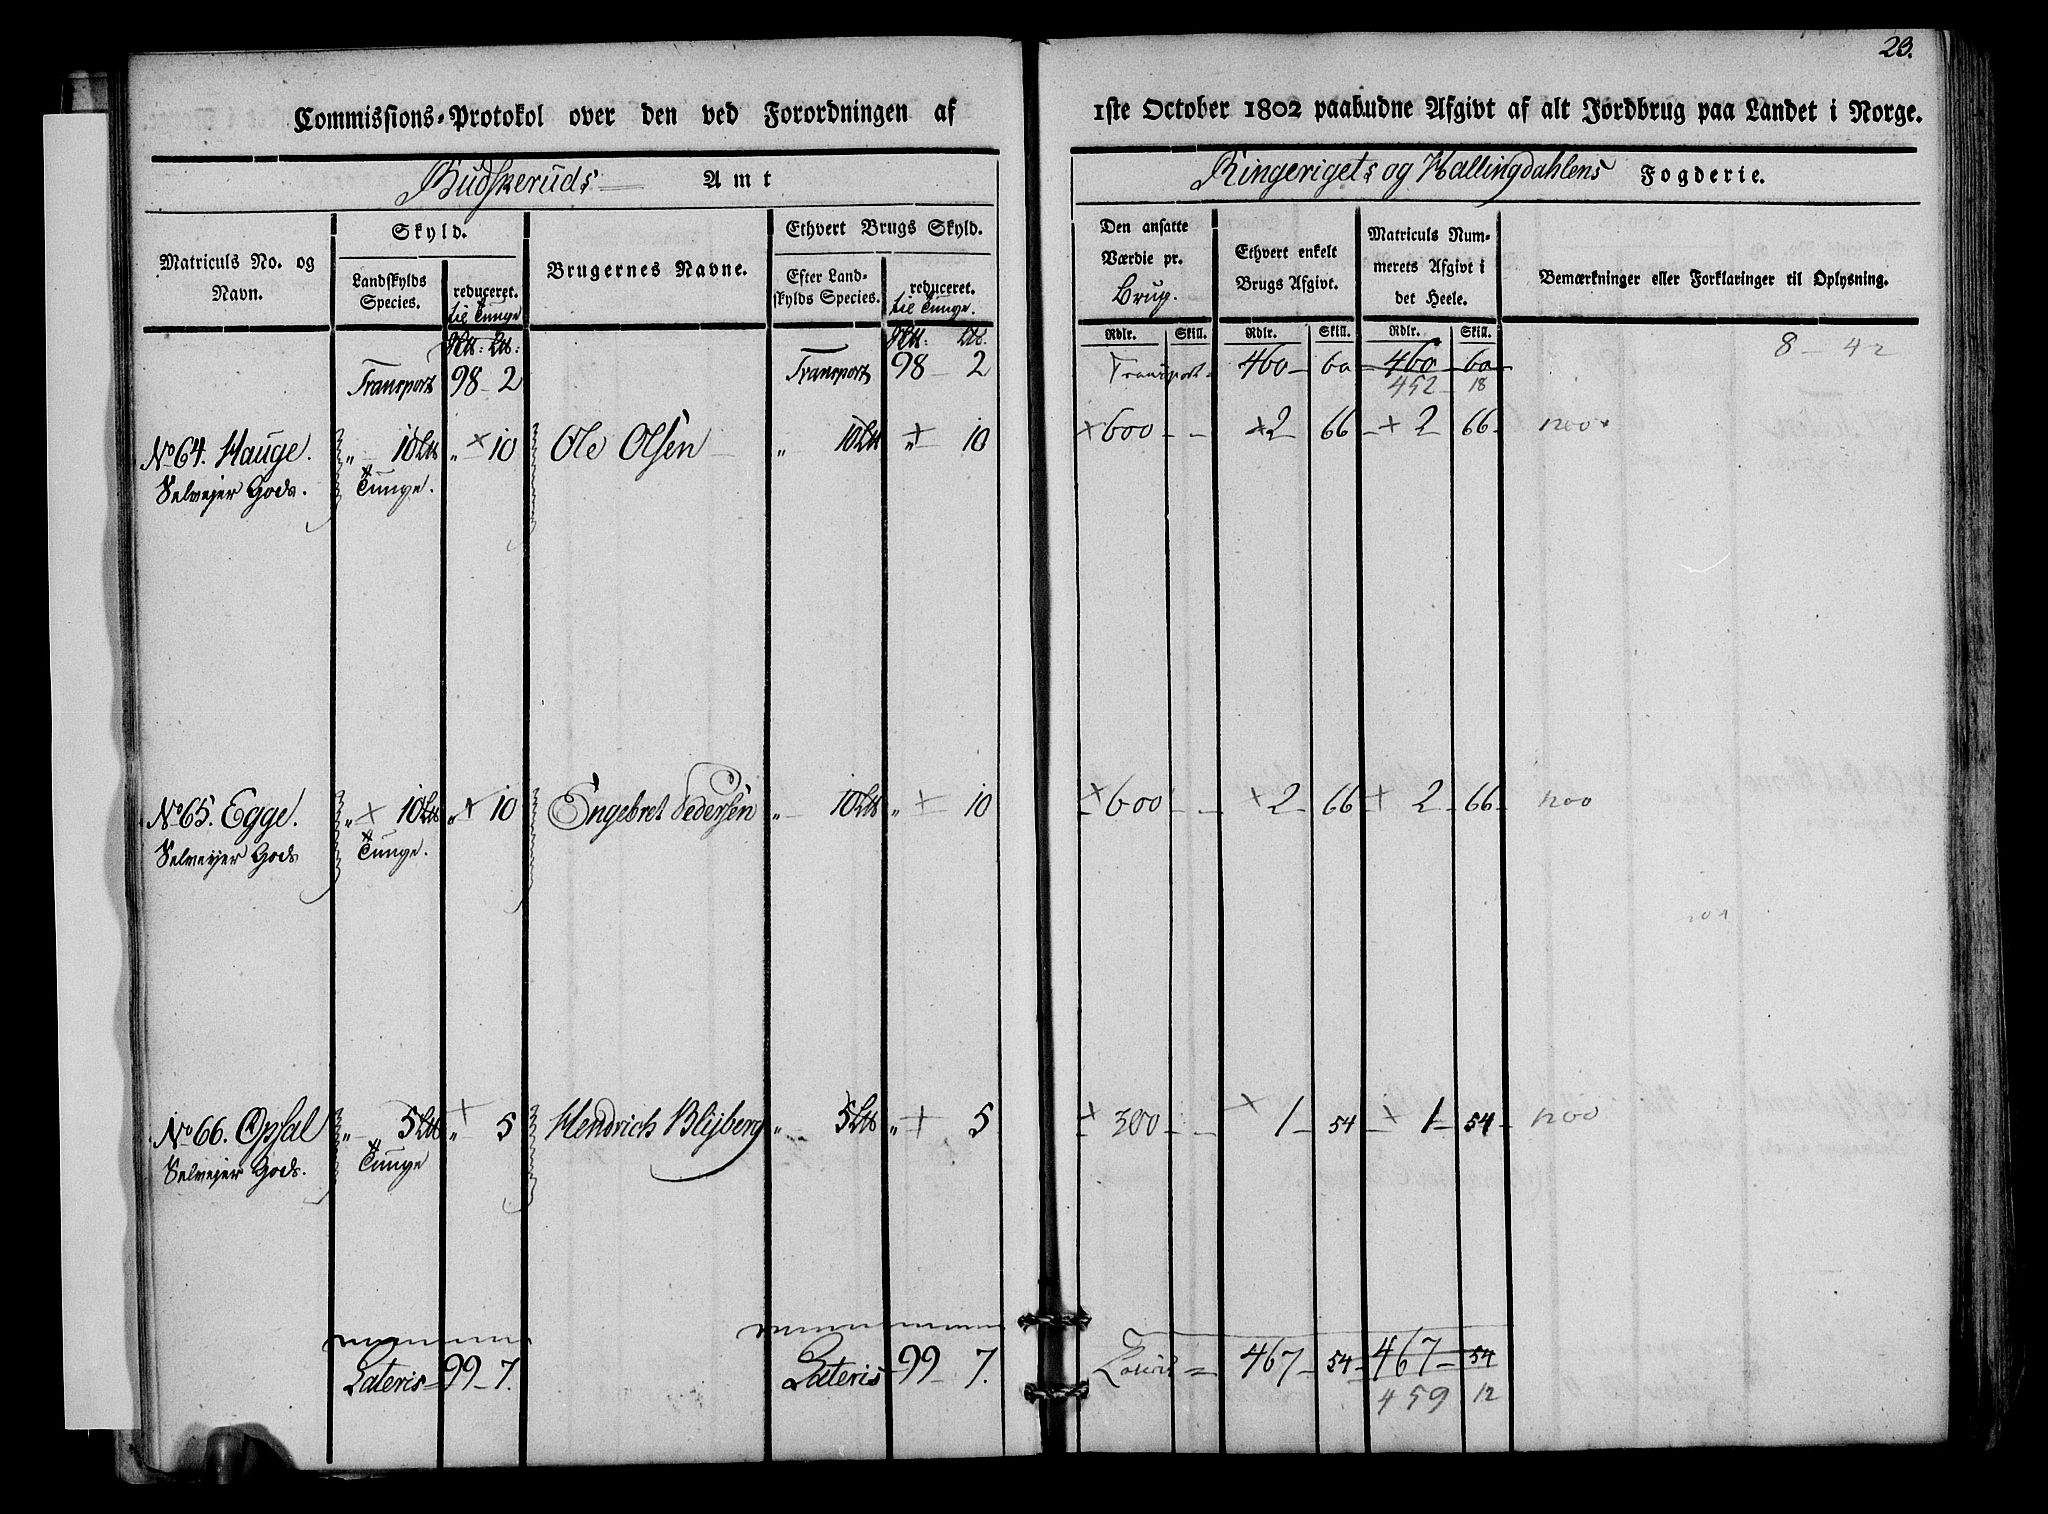 23.
Commissions-Protokol over den ved Forordningen af 1ste October 1802 paabudne Afgivt af alt Jordbrug paa Landet i Norge.
Budskeruds Amt
Ringerigets og Hallingdahlens Fogderie.
Matriculs No. og Navn.
Skyld.
Landskylds Species.
reduceret. til Tunge
Brugernes Navne.
Ethvert Brugs Skyld.
Efter Landskylds Species.
reduceret. til Tunge.
Den ansatte Værdie pr. Brug.
Ethvert enkelt Brugs Afgivt.
Matriculs Nummerets Afgivt i det Heele.
Bemærkninger eller Forklaringer til Oplysning.
Rdlr. Skill. Rdlr. Skill. Rdlr. Skill.
8 - 42
Transport 98 - 2 Transport 98 - 2 Transport 460 - 60 - 460 - 60
452 - 18
No 64. Hauge. " 10 Lb " × 10 Ole Olsen " 10 Lb " + 10 × 600 - - × 2 66 - × 2 66 - 1200
Selvejer Gods. Tunge.
No 65. Egge. " × 10 Lb " × 10 Engebret Pedersen " 10 Lb " + 10 × 600 - - × 2 - 66 × 2 - 66 - 1200
Selvejer Gods Tunge.
No 66. Opsal " 5 Lb " + 5 Hendrich Blijberg " 5 Lb " + 5 + 300 - - × 1 - 54 - × 1 - 54 - 1200
Selvejer Gods. Tunge
Lateris 99 - 7. Lateris 99 - 7. Lateris 467 - 54 - 467 - 54
459 12